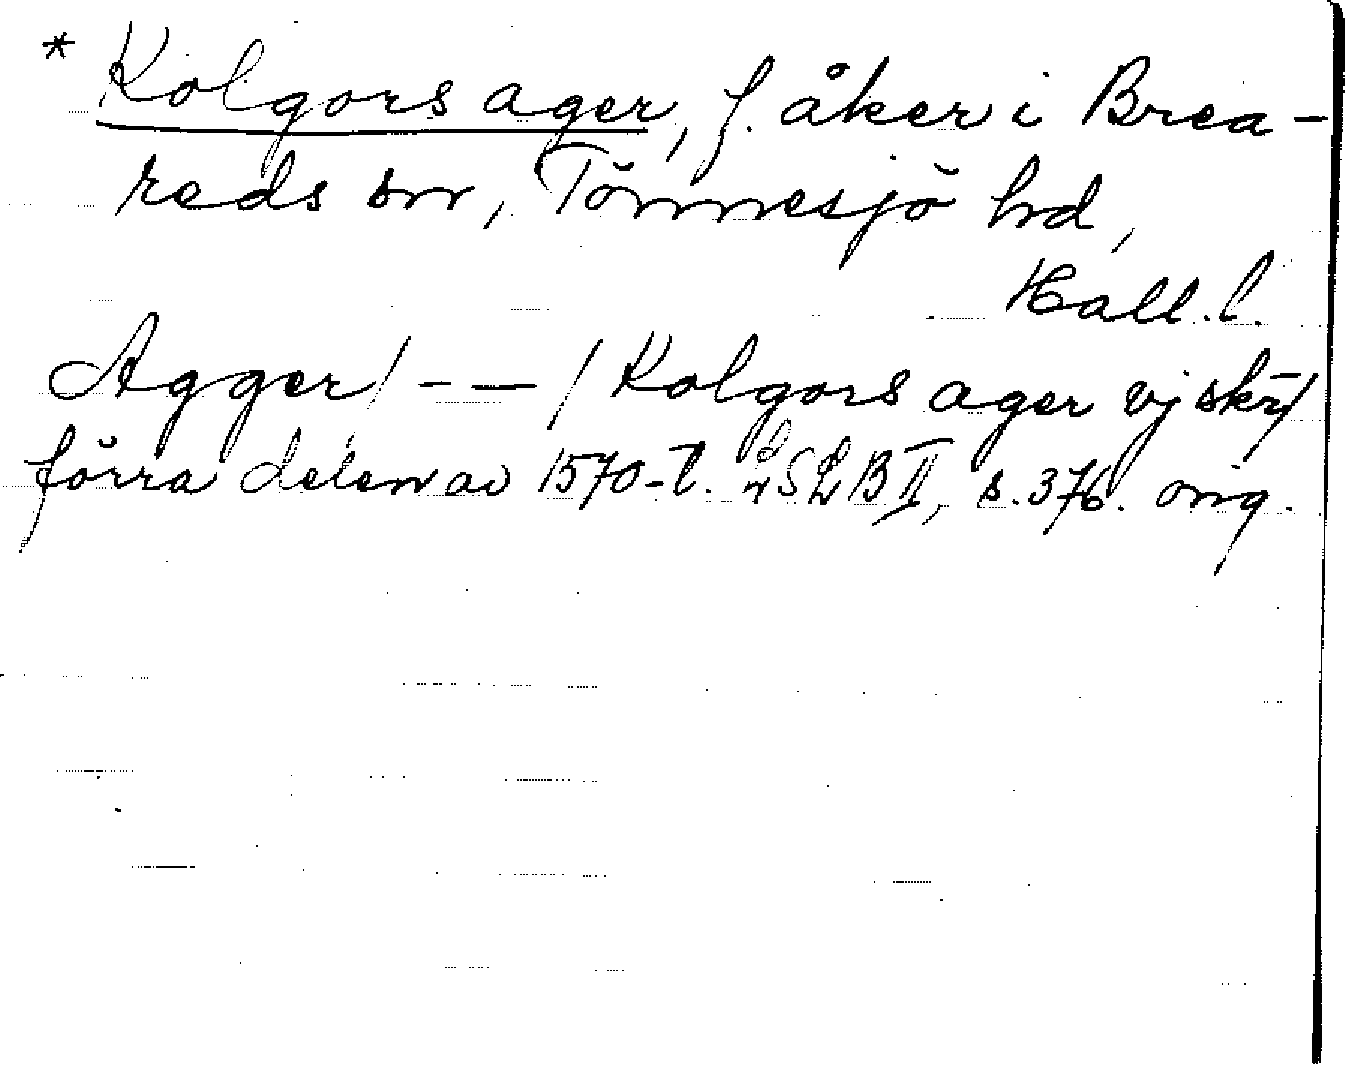 * Kolgors ager, f. åker i Brea-
reds sn, Tönnesjö hd,
Hall. l.
Agger /- — / Kolgors ager vj skr/
förra delen av 1570-t. LSLB II, s. 376. orig.